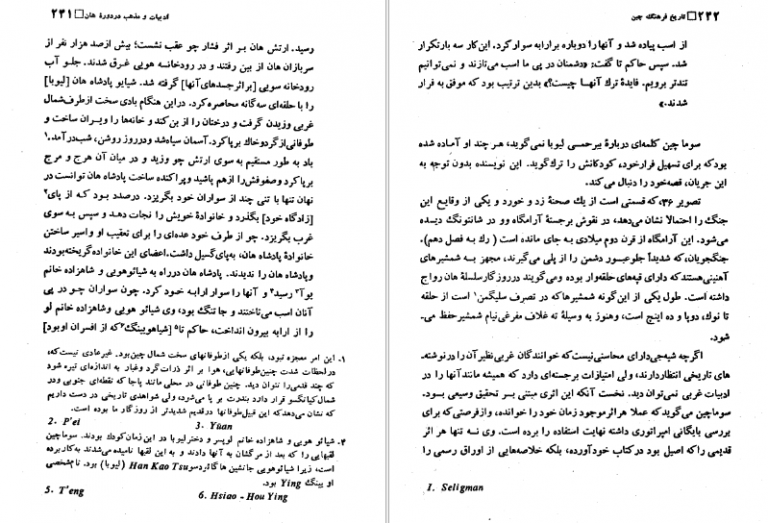 ادبیات و مذهب در دورهٔ هان □ ۲۴۱
رسید. ارتش هان بر اثر فشار چو عقب نشست؛ بیش از صد هزار نفر از
سربازان هان از بین رفتند و در رودخانه هویی غرق شدند. جلو آب
رودخانه سویی [بر اثر جسدهای آنها] گرفته شد. شیایو پادشاه هان [لیوبا]
را با حلقه‌ای سه گانه محاصره کرد. در این هنگام بادی سخت از طرف شمال
غربی وزیدن گرفت و درختان را از بن کند و خانه‌ها را ویران ساخت و
طوفانی از گرد و خاک برپا کرد. آسمان سیاه شد و در روز روشن، شب در آمد.۱
باد به طور مستقیم به سوی ارتش چو وزید و در میان آن هرج و مرج
برپا کرد و صفوفش را از هم پاشید و پراکنده ساخت پادشاه هان توانست در
نهان تنها با تنی چند از سواران خود بگریزد. درصدد بود که از پای۲
[زادگاه خود] بگذرد و خانوادهٔ خویش را نجات دهد و سپس به سوی
غرب بگریزد. چو از طرف خود عده‌ای را برای تعقیب او و اسیر ساختن
خانوادهٔ پادشاه هان، به پای گسیل داشت. اعضای این خانواده گریخته بودند
و پادشاه هان را ندیدند. پادشاه هان در راه به شیائو هویی و شاهزاده خانم
یوآ۳ رسید۴ و آنها را سوار ارابه خود کرد. چون سواران چو در پی
آنان اسب می‌تاختند و جا تنگ بود، وی شیائو هویی و شاهزاده خانم لو
را از ارابه بیرون انداخت، حاکم تا۵ [شیاهویینگ۶ که از افسران او بود]
۱. این امر معجزه نبود، بلکه یکی از طوفانهای سخت شمال چین بود. غیر عادی نیست که،
در لحظات شدت چنین طوفانهایی، هوا بر اثر ذرات گرد و غبار به اندازه‌ای تیره شود
که چند قدمی را نتوان دید. چنین طوفانی در محلی مانند پاجا که نقطه‌ای جنوبی و در
شمال کیانگسو قرار دارد بندرت بر پا می‌شود، ولی شواهدی تاریخی در دست داریم
که نشان می‌دهد که این قبیل طوفانها در قدیم شدیدتر از روزگار ما بوده است.
2. P'ei 3. Yüan
۴. شیائو هویی و شاهزاده خانم لو پسر و دختر لیوبا در این زمان کودک بودند. سوماچین
لقبهایی را که بعد از مرگشان به آنها دادند و به این لقبها نامیده می‌شدند به کار برده
است، زیرا شیائو هویی جانشین هائو گائو دسو Han Kao Tsu (لیوبا) بود. نام شخصی
او یینگ Ying بود.
5. T'eng 6. Hsiao - Hou Ying
۲۴۲ □ تاریخ فرهنگ چین
از اسب پیاده شد و آنها را دوباره بر ارابه سوار کرد. این کار سه بار تکرار
شد. سپس حاکم تا گفت: «دشمنان در پی ما اسب می‌تازند و نمی‌توانیم
تندتر برویم. فایدهٔ ترک آنها چیست؟» بدین ترتیب بود که موفق به فرار
شدند.»
سوما چین کلمه‌ای دربارهٔ بیرحمی لیوبا نمی‌گوید، هر چند او آماده شده
بود که برای تسهیل فرار خود، کودکانش را ترک گوید. این نویسنده بدون توجه به
این جریان، قصه خود را دنبال می‌کند.
تصویر ۳۶، که قسمتی از یک صحنهٔ زد و خورد و یکی از وقایع این
جنگ را احتمالا نشان می‌دهد، در نقوش برجستهٔ آرامگاه وو در شانتونگ دیده
می‌شود. این آرامگاه از قرن دوم میلادی به جای مانده است (رک به فصل دهم).
جنگجویان، که شدیداً جلو عبور دشمن را از پلی می‌گیرند، مجهز به شمشیرهای
آهنینی هستند که دارای قپه‌های حلقه‌وار بوده و می‌گویند در روزگار سلسلهٔ هان رواج
داشته است. طول یکی از این گونه شمشیرها که در تصرف سلیگمن۱ است از حلقه
تا نوک، دو پا و ده اینچ است، و هنوز به وسیلهٔ ته غلاف مفرغی نیام شمشیر حفظ می‌
شود.
اگر چه شبه جی دارای محاسنی نیست که خوانندگان غربی نظیر آن را در نوشته‌
های تاریخی انتظار دارند، ولی امتیازات برجسته‌ای دارد که همیشه مانند آنها را در
ادبیات غربی نمی‌توان دید. نخست آنکه این اثری مبتنی بر تحقیق وسیعی بود.
سوماچین می‌گوید که عملا هر اثر موجود زمان خود را خوانده، و از فرصتی که برای
بررسی بایگانی امپراتوری داشته نهایت استفاده را برده است. وی نه تنها هر اثر
قدیمی را که اصیل بود در کتاب خود آورده، بلکه خلاصه‌هایی از اوراق رسمی را
1. Seligman